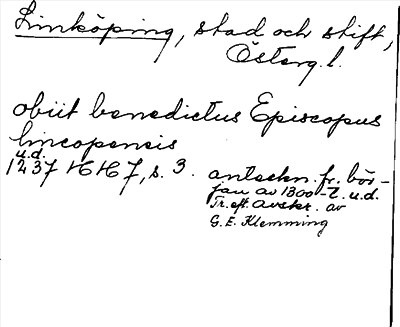 Linköping, stad och stift,
Österg. l.
obiit benedictus Episcopus
lincopensis
u.d.
1237 HH 7, s. 3. anteckn. fr. bör-
jan av 1300-t. u.d.
Tr. eft. avskr. av
G. E. Klemming